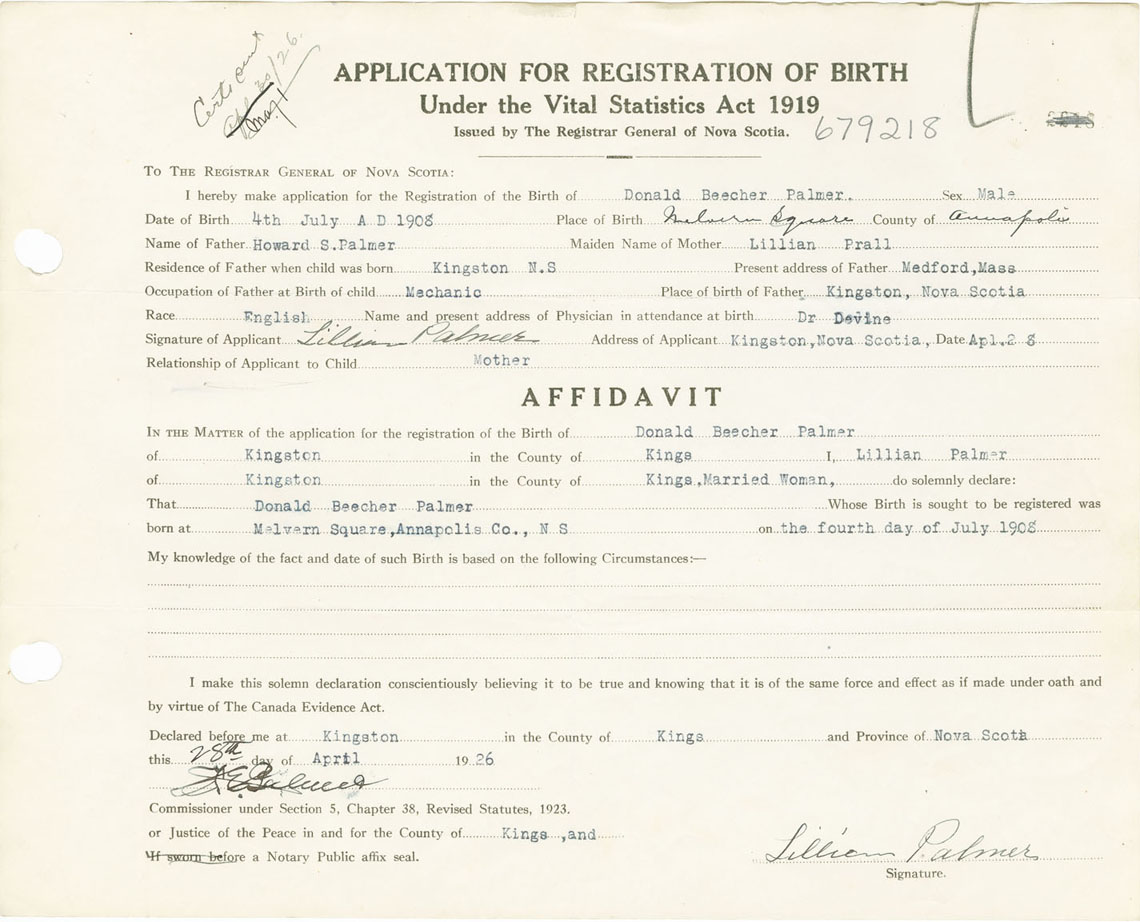 Certs sent
Apl 30/26.
May 1
APPLICATION FOR REGISTRATION OF BIRTH
Under the Vital Statistics Act 1919
Issued by The Registrar General of Nova Scotia. 679218
TO THE REGISTRAR GENERAL OF NOVA SCOTIA:
I hereby make application for the Registration of the Birth of Donald Beecher Palmer. Sex Male
Date of Birth 4th July A D 1908 Place of Birth Melvern Square County of Annapolis
Name of Father Howard S.Palmer Maiden Name of Mother Lillian Prall
Residence of Father when child was born Kingston N.S Present address of Father Medford,Mass
Occupation of Father at Birth of child Mechanic Place of birth of Father Kingston, Nova Scotia
Race English Name and present address of Physician in attendance at birth Dr Devine
Signature of Applicant Lillian Palmer Address of Applicant Kingston,Nova Scotia, Date Apl.28
Relationship of Applicant to Child Mother
AFFIDAVIT
IN THE MATTER of the application for the registration of the Birth of Donald Beecher Palmer
of Kingston in the County of Kings I, Lillian Palmer
of Kingston in the County of Kings,Married Woman, do solemnly declare:
That Donald Beecher Palmer Whose Birth is sought to be registered was
born at Melvern Square,Annapolis Co., N S on the fourth day of July 1908
My knowledge of the fact and date of such Birth is based on the following Circumstances:—
I make this solemn declaration conscientiously believing it to be true and knowing that it is of the same force and effect as if made under oath and
by virtue of The Canada Evidence Act.
Declared before me at Kingston in the County of Kings and Province of Nova Scota
this 28th day of April 1926
Commissioner under Section 5, Chapter 38, Revised Statutes, 1923.
or Justice of the Peace in and for the County of Kings ,and
If sworn before a Notary Public affix seal.
Lillian Palmer
Signature.